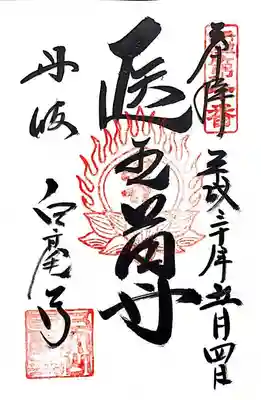 奉拝
平成三十年五月四日
医王尊
丹波
白毫寺